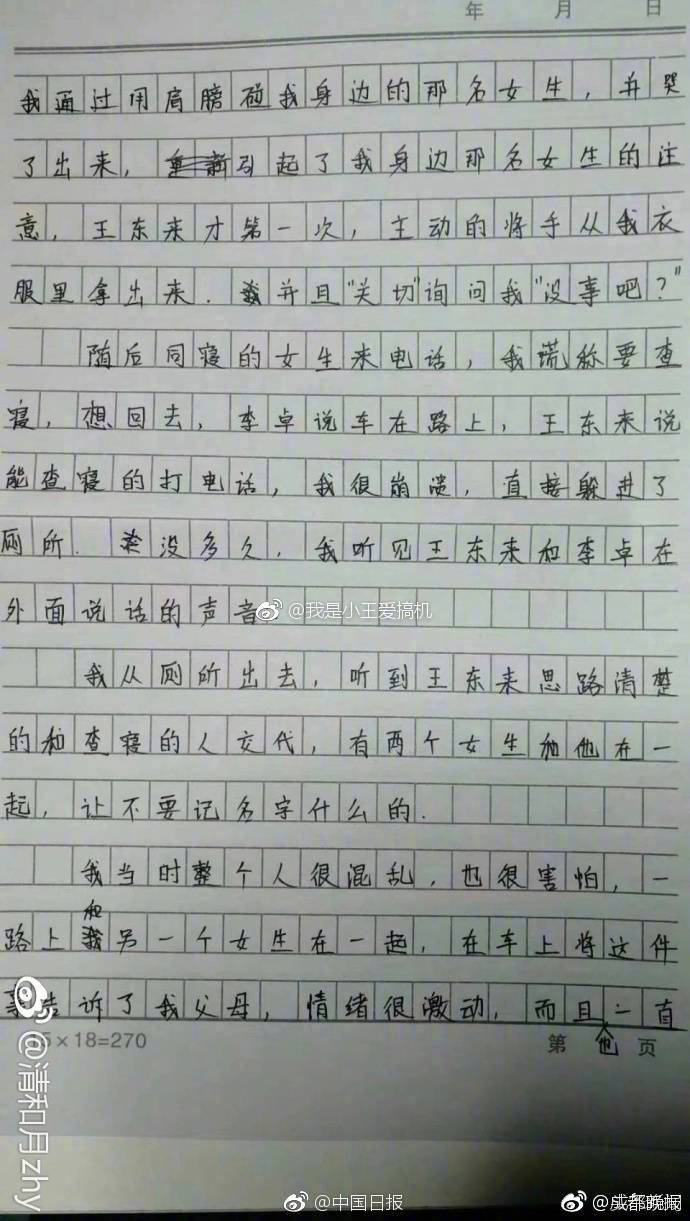 年 月 日
我通过用肩膀碰我身边的那名女生，并哭
了出来，引起了我身边那名女生的注
意，王东来才第一次，主动的将手从我衣
服里拿出来．并且“关切”询问我“没事吧？”
随后同寝的女生来电话，我谎称要查
寝，想回去，李卓说车在路上，王东来说
能查寝的打电话，我很崩溃，直接躲进了
厕所．没多久．我听见王东来和李卓在
外面说话的声音
@我是小王爱搞机
我从厕所出去，听到王东来思路清楚
的和查寝的人交代，有两个女生和他在一
起，让不要记名字什么的．
我当时整个人很混乱，也很害怕，一
路上和另一个女生在一起，在车上将这件
事告诉了我父母，情绪很激动，而且他一直
15×18=270
第 页
@清和月zhy
@中国日报
@成都晚报